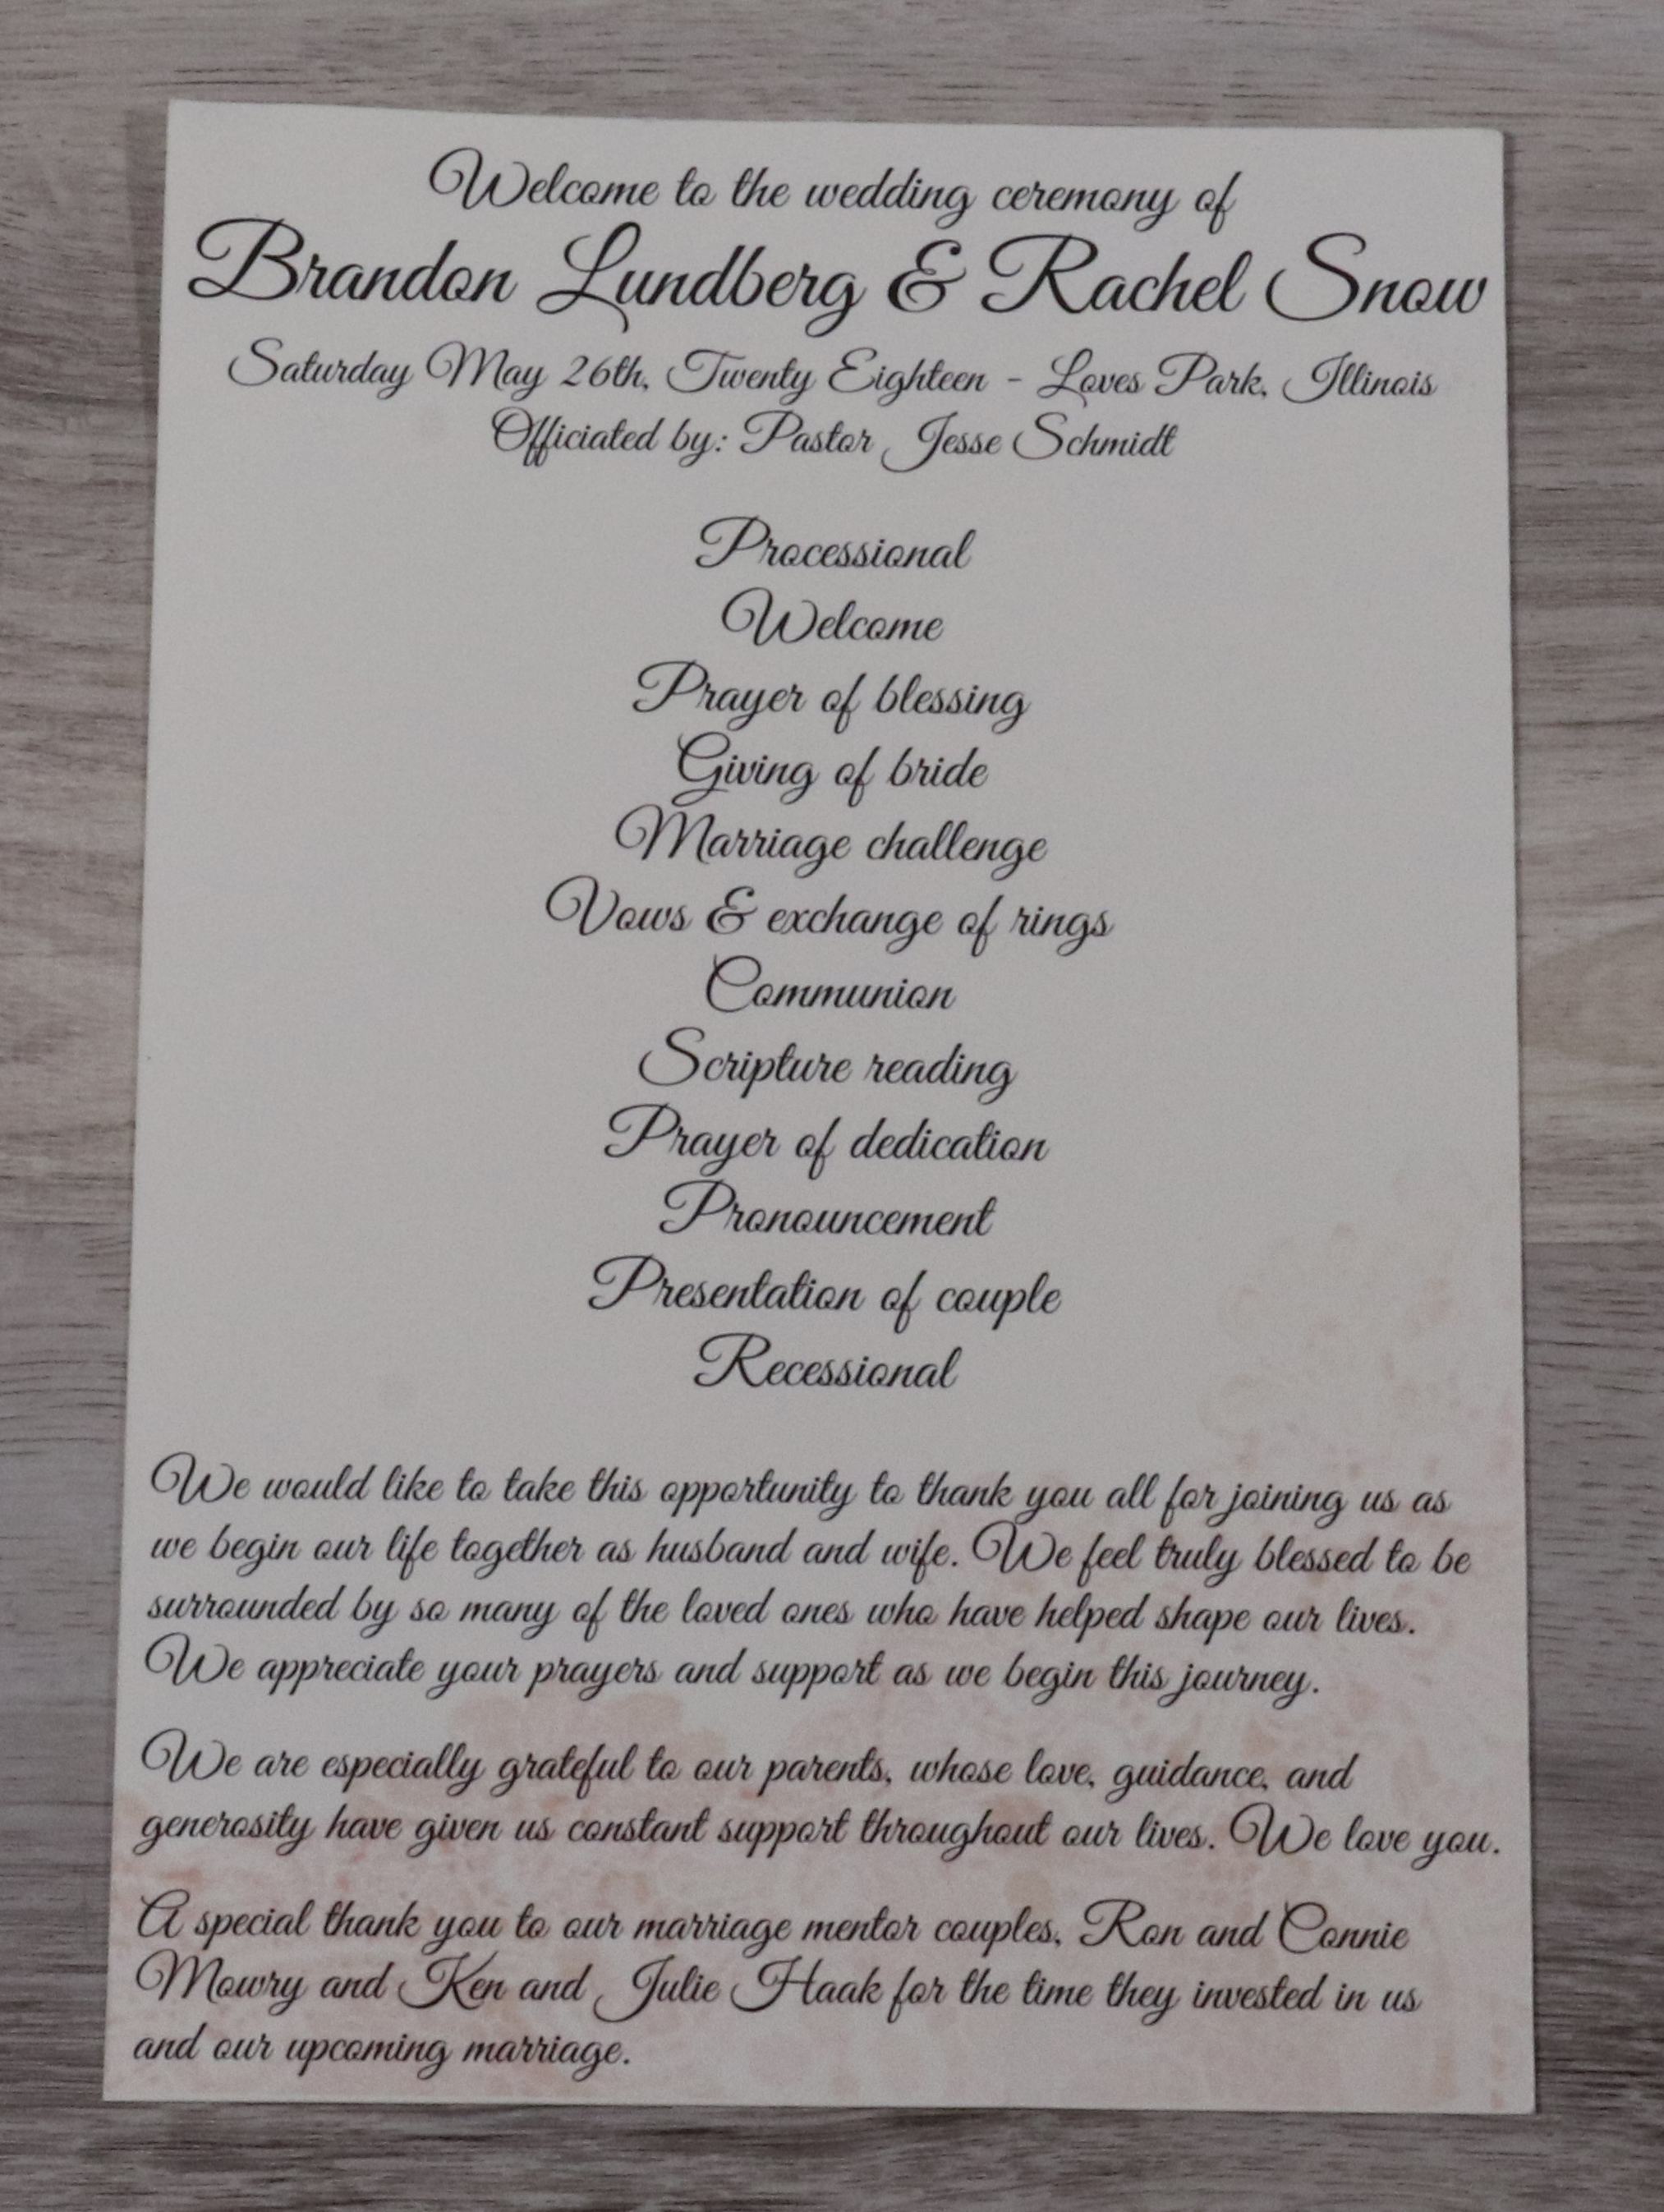 Welcome to the wedding ceremony of
Brandon Lundberg & Rachel Snow
Saturday May 26th, Twenty Eighteen - Loves Park, Illinois
Officiated by: Pastor Jesse Schmidt
Processional
Welcome
Prayer of blessing
Giving of bride
Marriage challenge
Vows & exchange of rings
Communion
Scripture reading
Prayer of dedication
Pronouncement
Presentation of couple
Recessional
We would like to take this opportunity to thank you all for joining us as
we begin our life together as husband and wife. We feel truly blessed to be
surrounded by so many of the loved ones who have helped shape our lives.
We appreciate your prayers and support as we begin this journey.
We are especially grateful to our parents, whose love, guidance, and
generosity have given us constant support throughout our lives. We love you.
A special thank you to our marriage mentor couples, Ron and Connie
Mowry and Ken and Julie Haak for the time they invested in us
and our upcoming marriage.